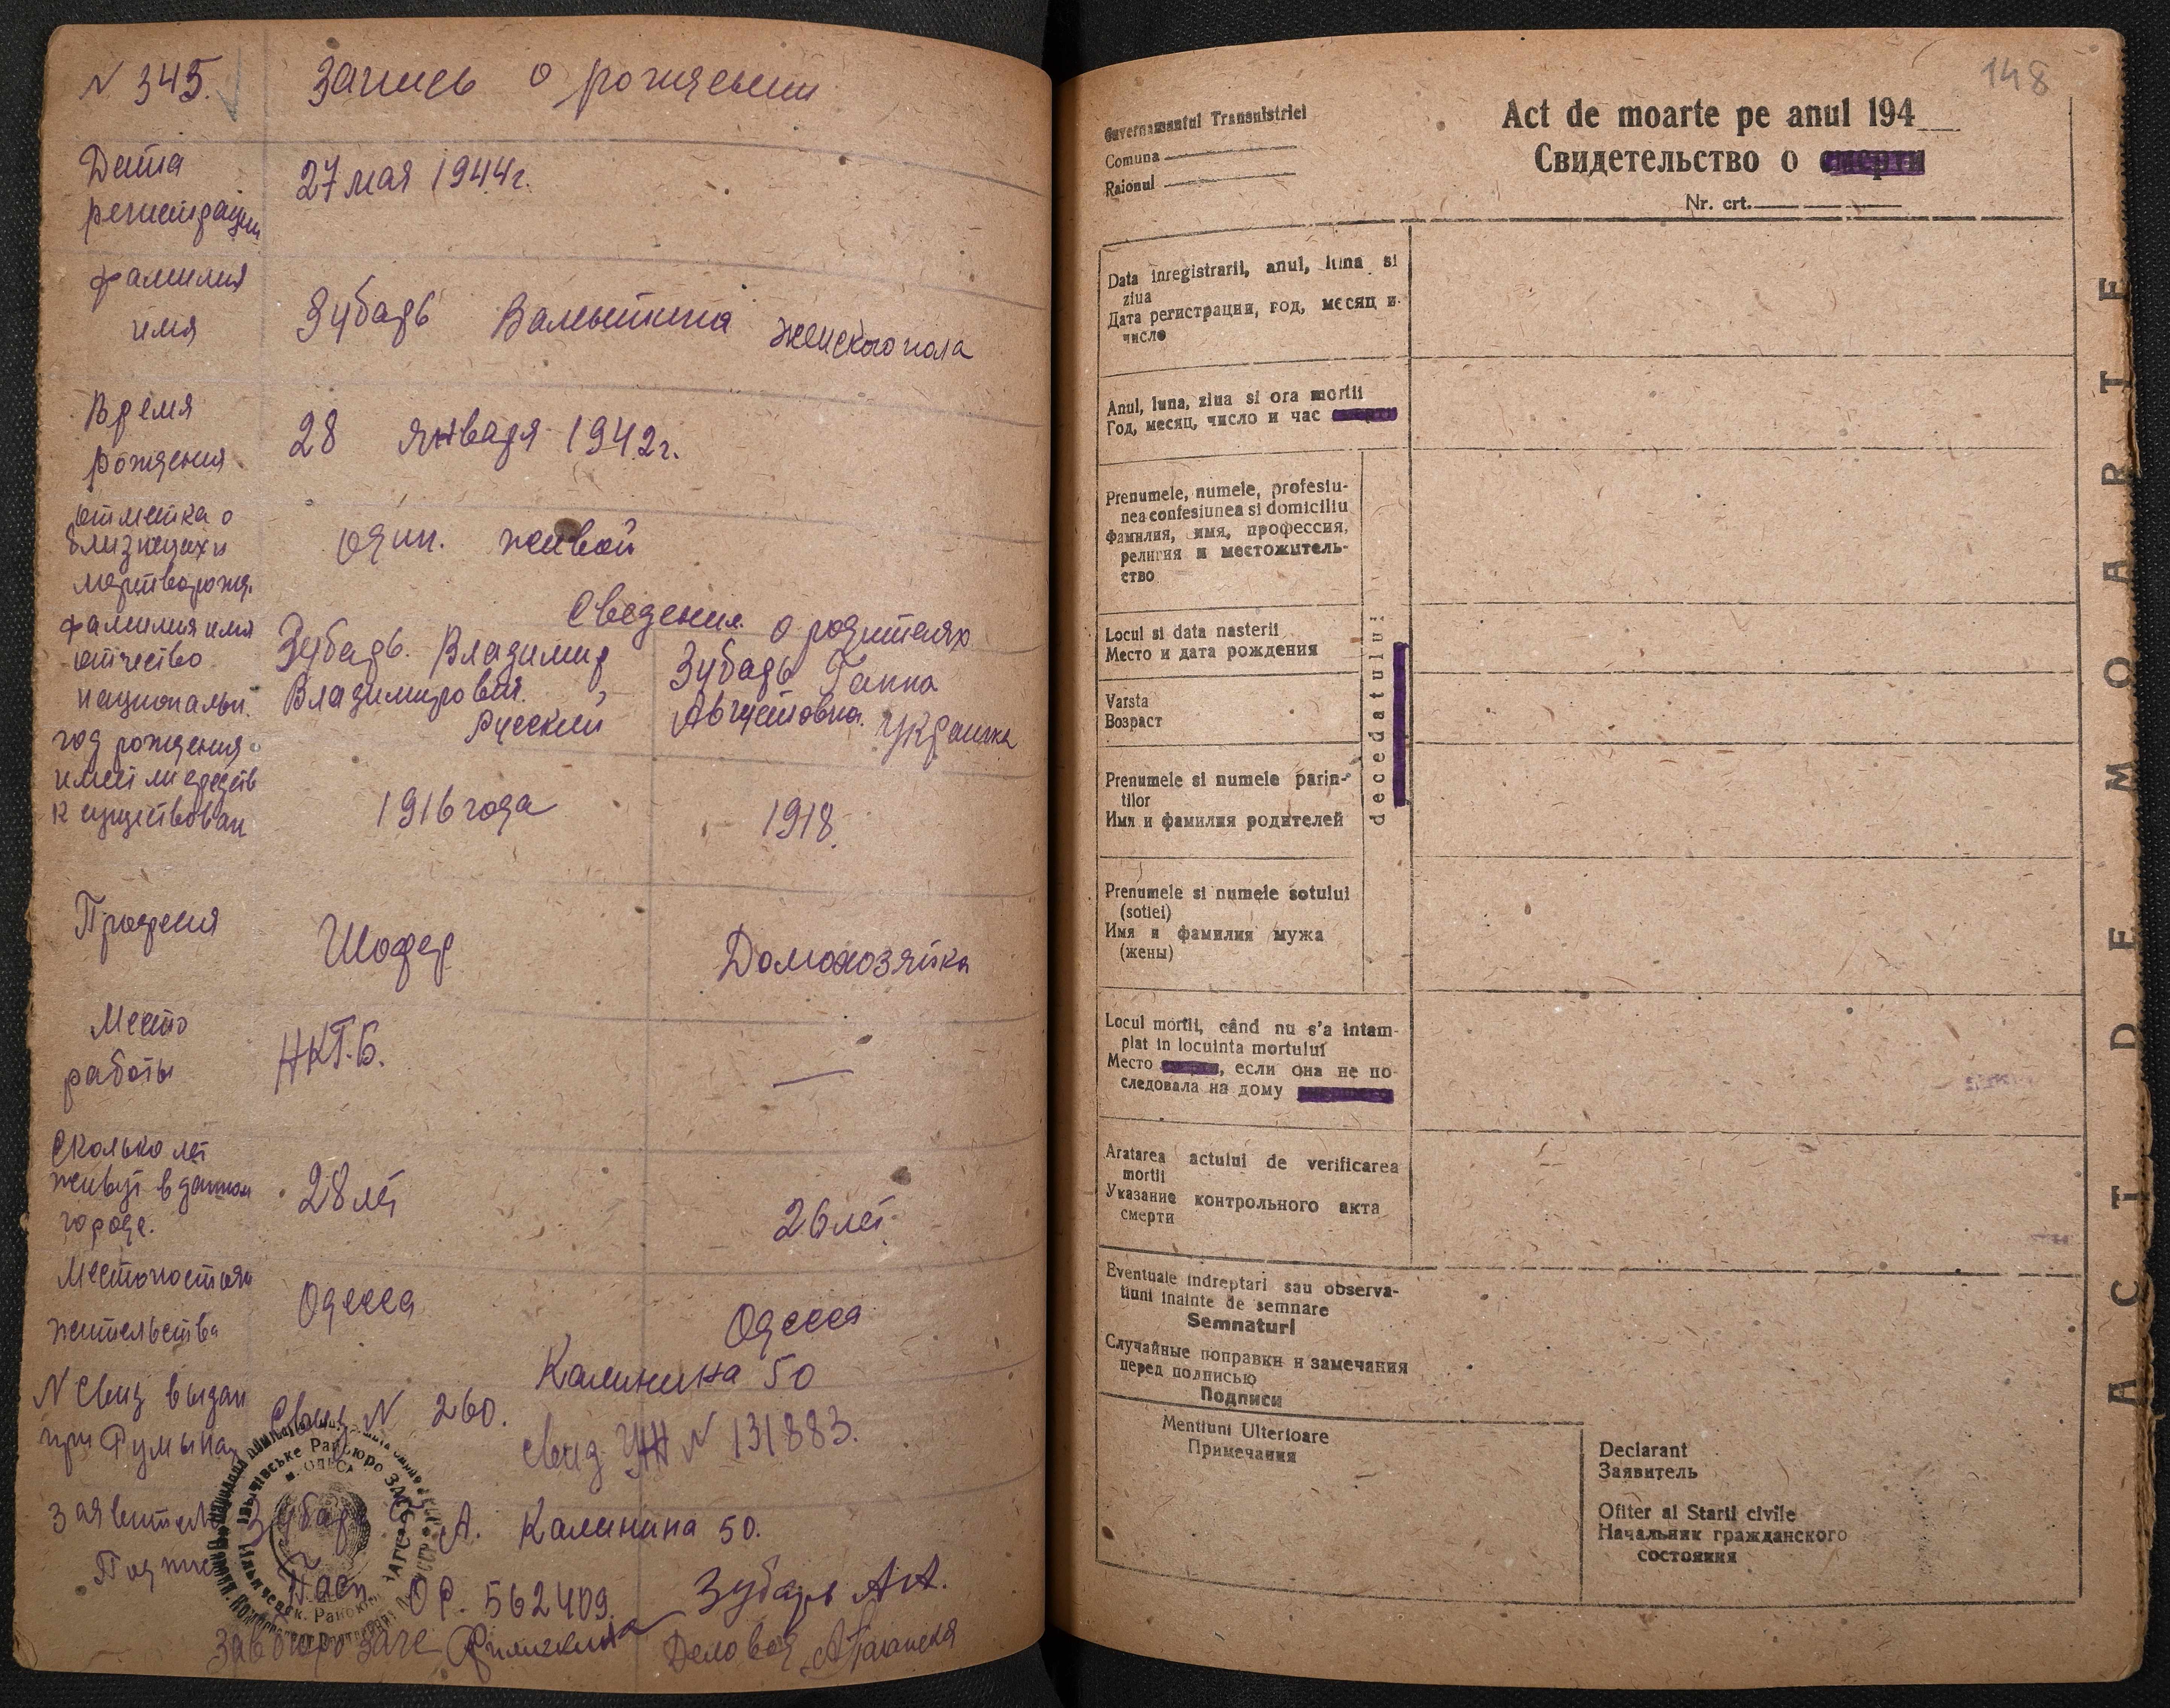 N 345. Запись о рождении
Дата
регистрации
27 мая 1944 г.
фамилия
имя
Зубарь Валентина женского пола
Время
рождения
28 января 1942 г.
отметка о
близнецах и
мертворожд.
один. живой
Сведения о родителях
фамилия имя
отчество
национальн.
Зубарь. Владимир
Владимирович.
Русский
Зубарь Ганна
Августовна. Украинка
год рождения
имеет ли средств
к существован
1916 года
1918.
Профессия
Шофер
Домохозяйка
Место
работы
НКГ.Б.
—
Сколько лет
живут в данном
городе.
28 лет
26 лет.
Место постоян
жительства
Одесса
Одесса
Калинина 50
N Свид выдан
при Румынах
Свид N 260.
Свид N 131883.
Заявитель Зубарь А. Калинина 50.
Подпис Пасп. ОР. 562409. Зубарь А.А.
Зав бюро Загс Деловод
148
Guvernamantul Transnistriei
Comuna
Raionul
Act de moarte pe anul 194
Свидетельство о
Nr. crt.
Data inregistrarii, anul, luna si
ziua
Дата регистрации, год, месяц и
число
Anul, luna, ziua si ora mortii
Год, месяц, число и час
Prenumele, numele, profesiu-
nea confesiunea si domiciliu
Фамилия, имя, профессия,
религия и местожитель-
ство
Locul si data nasterii
Место и дата рождения
Varsta
Возраст
Prenumele si numele parin-
tilor
Имя и фамилия родителей
Prenumele si numele sotului
(sotiei)
Имя и фамилия мужа
(жены)
decedatului
Locul mortii, când nu s'a intam-
plat in locuinta mortului
Место , если она не по-
следовала на дому
Aratarea actului de verificarea
mortii
Указание контрольного акта
смерти
Eventuale indreptari sau observa-
tiuni inainte de semnare
Semnaturi
Случайные поправки и замечания
перед подписью
Подписи
Mentiuni Ulterioare
Примечания
Declarant
Заявитель
Ofiter al Starii civile
Начальник гражданского
состояния
ACT DE MOARTE